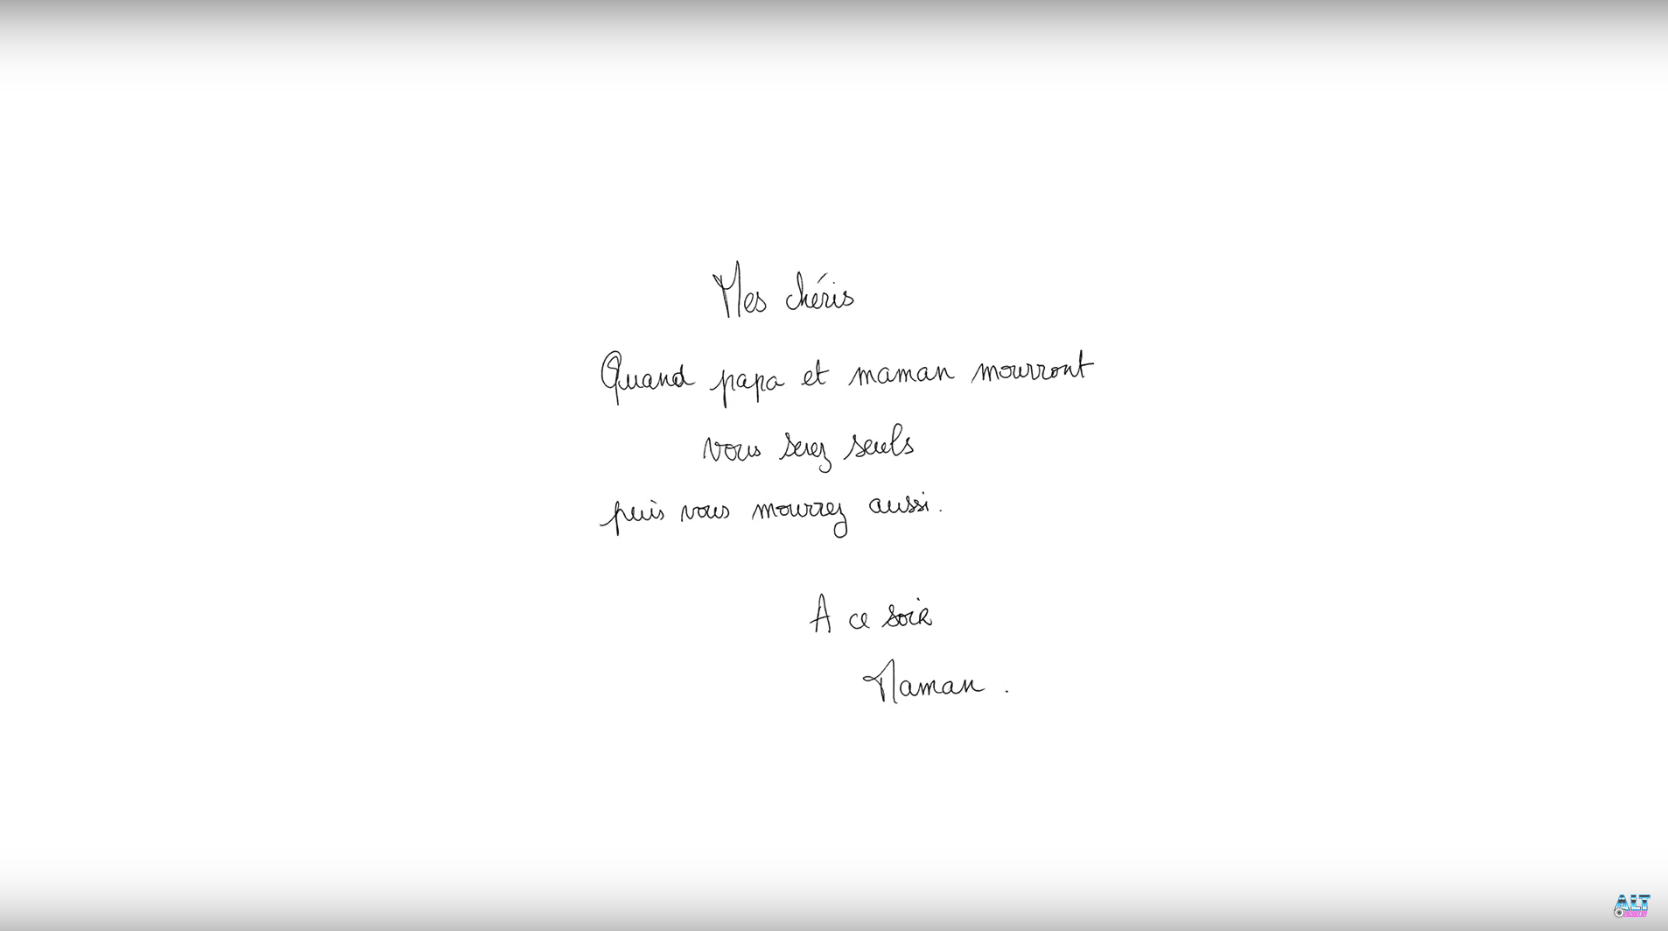 Mes chéris
Quand papa et maman mourront
vous serez seuls
puis vous mourrez aussi.
A ce soir
Maman.
ALT